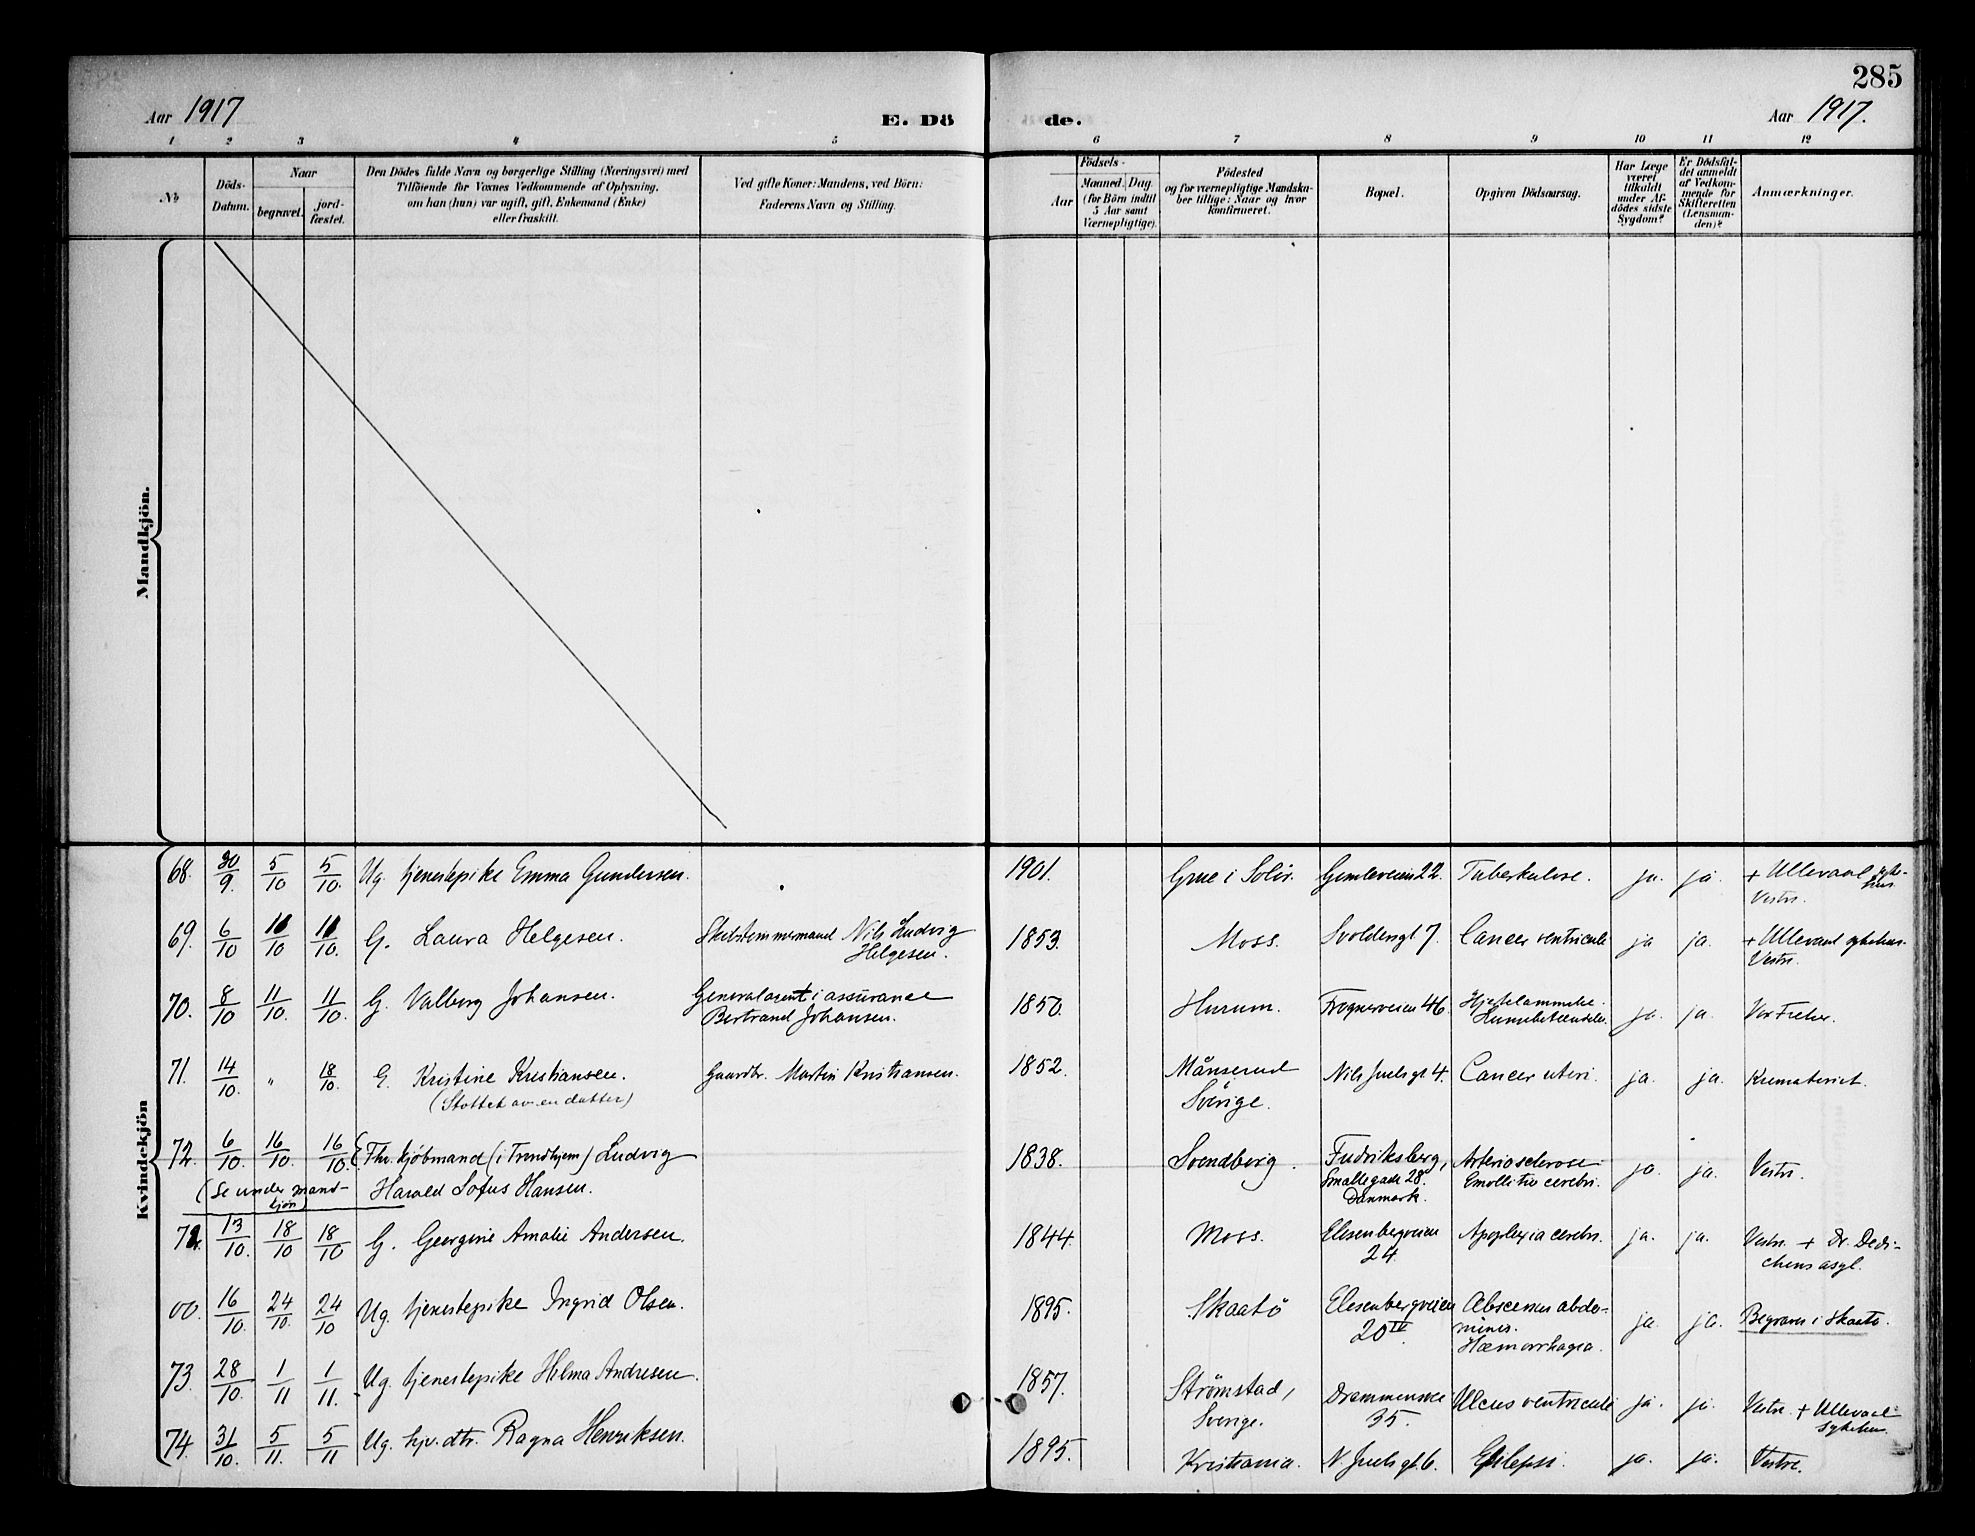 285
Aar 1917
E. Dö
de.
Aar 1917.
1 2 3 4 5 6 7 8 9 10 11 12
№
Döds-
Datum.
Naar
begravet.
jord-
fæstet.
Den Dödes fulde Navn og borgerlige Stilling (Næringsvei) med
Tilföiende for Voxnes Vedkommende af Oplysning.
om han (hun) var ugift, gift, Enkemand (Enke)
eller fraskilt.
Ved gifte Koner: Mandens, ved Börn:
Faderens Navn og Stilling.
Födsels-
Aar
Maaned. Dag.
(for Börn indtil
5 Aar samt
Værnepligtige).
Födested
og for værnepligtige Mandska-
ber tillige: Naar og hvor
konfirmeret.
Bopæl.
Opgiven Dödsaarsag.
Har Læge
været
tilkaldt
under Af-
dödes sidste
Sygdom?
Er Dödsfal-
det anmeldt
af Vedkom-
mende for
Skifteretten
(Lensman-
den)?
Anmærkninger.
Mandkjön.
Kvindekjön
68. 30/9. 5/10 5/10. Ug. tjenestepike Emma Gundersen. 1901. Grue i Solör. Gimleveien 22. Tuberkulose. ja. ja. + Ullevaal syke-
hus
Vestre.
69. 6/10 11/10 11/10. G. Laura Helgesen. Skibstømmermand Nils Ludvig
Helgesen. 1853. Moss. Svoldersgt 7. Cancer ventriculi ja ja. + Ullevaal sykehus.
Vestre.
70. 8/10 11/10. 11/10. G. Valborg Johansen. Generalagent i assurance
Bertrand Johansen. 1850. Hurum. Frognerveien 46. Hjertelammelse.
ja. ja. Vor Frelser.
71. 14/10. " 18/10. G. Kristine Kristiansen. Gaardbr. Martin Kristiansen. 1852. Månserud
Sverige. Nils Juels gt 4. Cancer uteri. ja. ja. Krematoriet.
(Støttet av en datter)
72. 6/10. 16/10. 16/10. Fhv. kjöbmand (i Trondhjem) Ludvig
Harald Sofus Hansen. 1838. Svendborg. Fredriksberg,
Smallegade 28.
Danmark. Arteriosclerose
Emollitio cerebri. ja. ja. Vestre.
(Se under mand-
kjön)
72. 13/10. 18/10 18/10 G. Georgine Amalie Andersen. 1844. Moss. Elesenbergveien
24. Apoplexia cerebri. ja. ja. Vestre. + Dr. Dedi-
chens asyl.
00. 16/10. 24/10. 24/10 Ug. tjenestepike Ingrid Olsen. 1895. Skaatö Elesenbergveien
20 IV Abscessus abdo-
minis.
Hæmorrhagia. ja. ja. Begraves i Skaatö.
73. 28/10. 1/11 1/11. Ug. tjenestepike Hilma Andresen. 1857. Strømstad,
Sverige. Drammensvei
35. Ulcus ventriculi ja. ja. Vestre. + Ullevaal
Sykehus.
74. 31/10. 5/11. 5/11 Ug. hjv. dtr. Ragna Henriksen. 1895. Kristiania. N. Juels gt. 6. Epilepsi. ja. ja. Vestre.